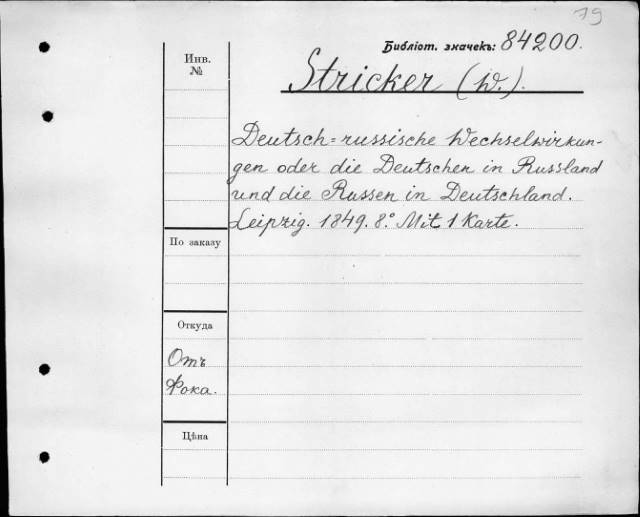 79
Библіот. значекъ: 84200.
Инв.
№
Stricker (W.).
Deutsch=russische Wechselwirkun-
gen oder die Deutschen in Russland
und die Russen in Deutschland.
Leipzig. 1849. 8.° Mit 1 Karte.
По заказу
Откуда
Отъ
Фока.
Цѣна